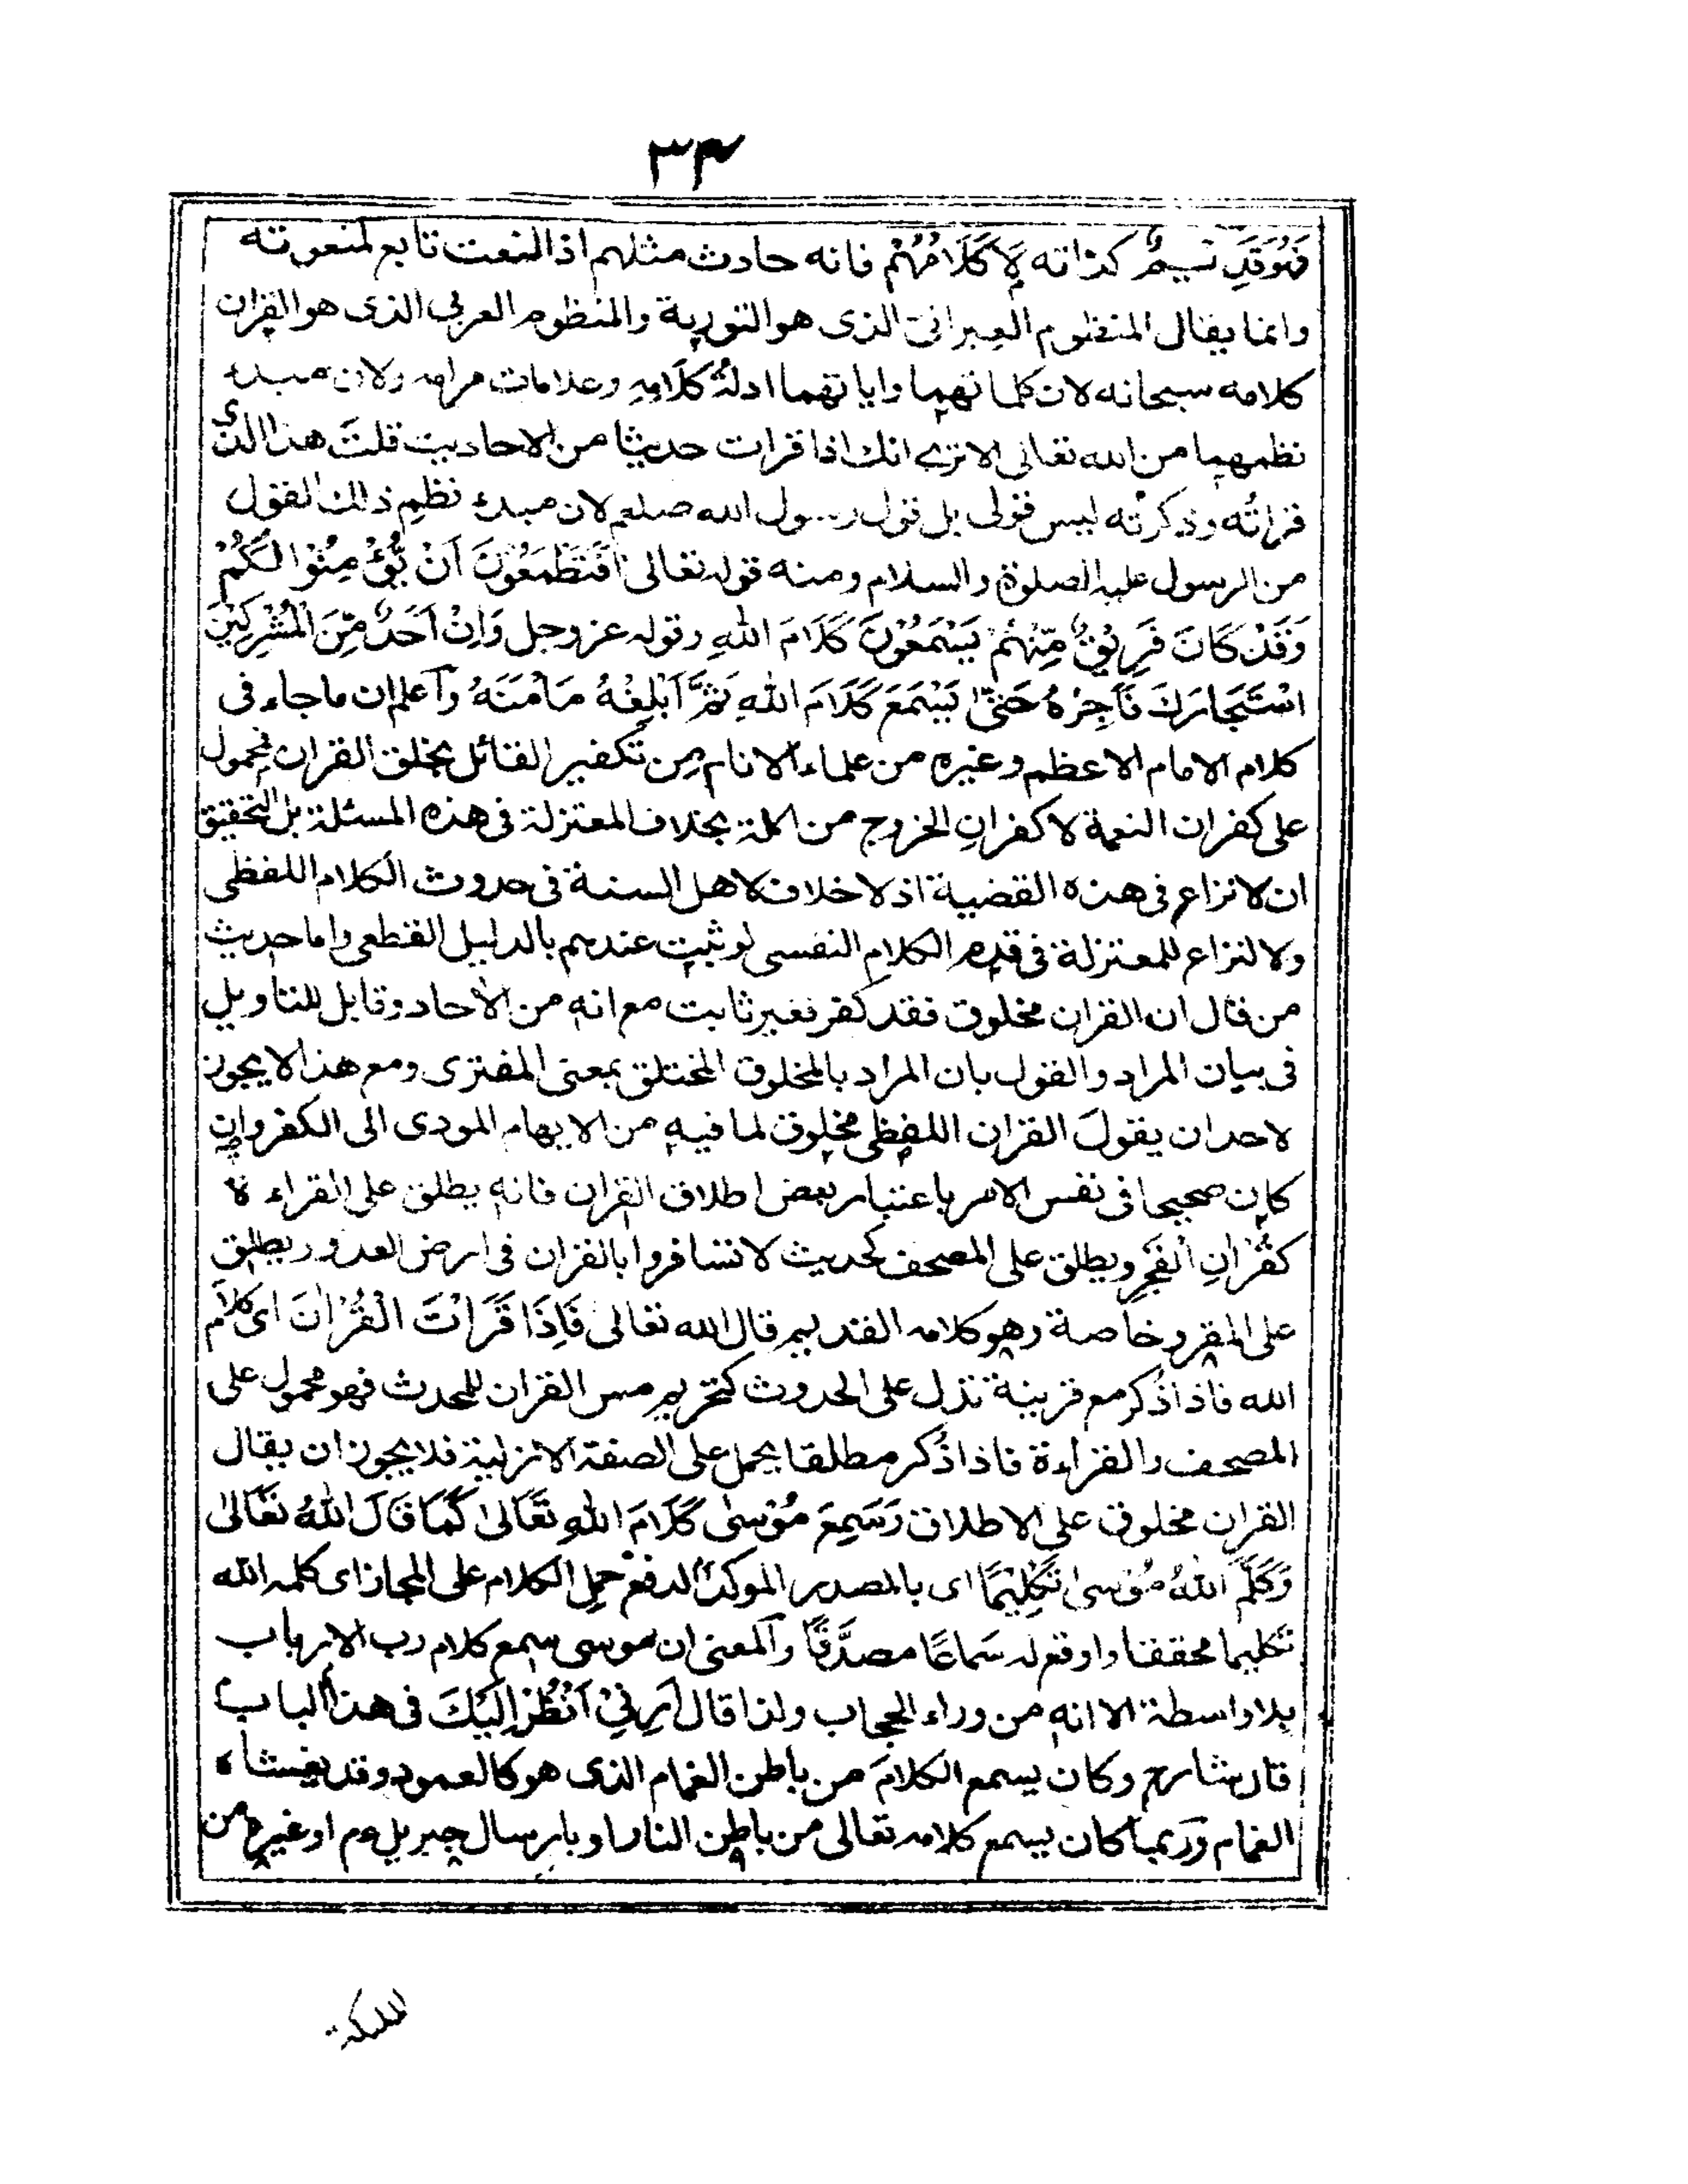 ٣٤
فَهُوَ قَدِيْمٌ كذاته لَا كَلَامُهُمْ فانه حادث مثلهم اذ النعت تابع لمنعوته
وانما يقال المنظوم العبرانى الذى هو التورية والمنظوم العربى الذى هو القران
كلامه سبحانه لان كلماتهما واياتهما ادلة كلامه وعلامات مرامه ولان مبدء
نظمهما من الله تعالى الا ترى انك اذا قرات حديثا من الاحاديث قلت هذا الذى
قراته وذكرته ليس قولى بل قول رسول الله صلعم لان مبدء نظم ذلك القول
من الرسول عليه الصلوة والسلام ومنه قوله تعالى اَفَتَطْمَعُوْنَ اَنْ يُّؤْمِنُوْا لَكُمْ
وَقَدْ كَانَ فَرِيْقٌ مِّنْهُمْ يَسْمَعُوْنَ كَلَامَ اللهِ وقوله عز وجل وَاِنْ اَحَدٌ مِّنَ الْمُشْرِكِيْنَ
اسْتَجَارَكَ فَاَجِرْهُ حَتّٰى يَسْمَعَ كَلَامَ اللهِ ثُمَّ اَبْلِغْهُ مَاْمَنَهُ واعلم ان ما جاء فى
كلام الامام الاعظم وغيره من علماء الانام من تكفير القائل بخلق القران فمحمول
على كفران النعمة لا كفران الخروج من الملة بخلاف المعتزلة فى هذه المسئلة بل التحقيق
ان لا نزاع فى هذه القضية اذ لا خلاف لاهل السنة فى حدوث الكلام اللفظى
ولا نزاع للمعتزلة فى قدم الكلام النفسى لو ثبت عندهم بالدليل القطعى واما حديث
من قال ان القران مخلوق فقد كفر فغير ثابت مع انه من الاحاد وقابل للتاويل
فى بيان المراد والقول بان المراد بالمخلوق المختلق بمعنى المفترى ومع هذا لا يجوز
لاحد ان يقول القران اللفظى مخلوق لما فيه من الايهام المودى الى الكفر وان
كان صحيحا فى نفس الامر باعتبار بعض اطلاق القران فانه يطلق على القراءة
كقُرْانِ الفَجرِ ويطلق على المصحف كحديث لا تسافروا بالقران فى ارض العدو ويطلق
على المقرو خاصة وهو كلامه القديم قال الله تعالى فَاِذَا قَرَاْتَ الْقُرْاٰنَ اى كلام
الله فاذا ذكر مع قرينة تدل على الحدوث كتحريم مس القران للمحدث فهو محمول على
المصحف والقراءة فاذا ذكر مطلقا يحمل على الصفة الازلية فلا يجوز ان يقال
القران مخلوق على الاطلاق وَسَمِعَ مُوْسٰى كَلَامَ اللهِ تَعَالٰى كَمَا قَالَ اللهُ تَعَالٰى
وَكَلَّمَ اللهُ مُوْسٰى تَكْلِيْمًا اى بالمصدر الموكد لدفع حمل الكلام على المجاز اى كلمه الله
تكليما محققا واوقع له سَماعًا مصدَّقًا والمعنى ان موسى سمع كلام رب الارباب
بلا واسطة الا انه من وراء الحجاب ولذا قال اَرِنِيْ اَنْظُرْ اِلَيْكَ فى هذا الباب
قال شارح وكان يسمع الكلامَ من باطن الغمام الذى هو كالعمود وقد يغشاه
الغمام وربما كان يسمع كلامه تعالى من باطن النار او بارسال جبريل عم او غيره من
الملئكة